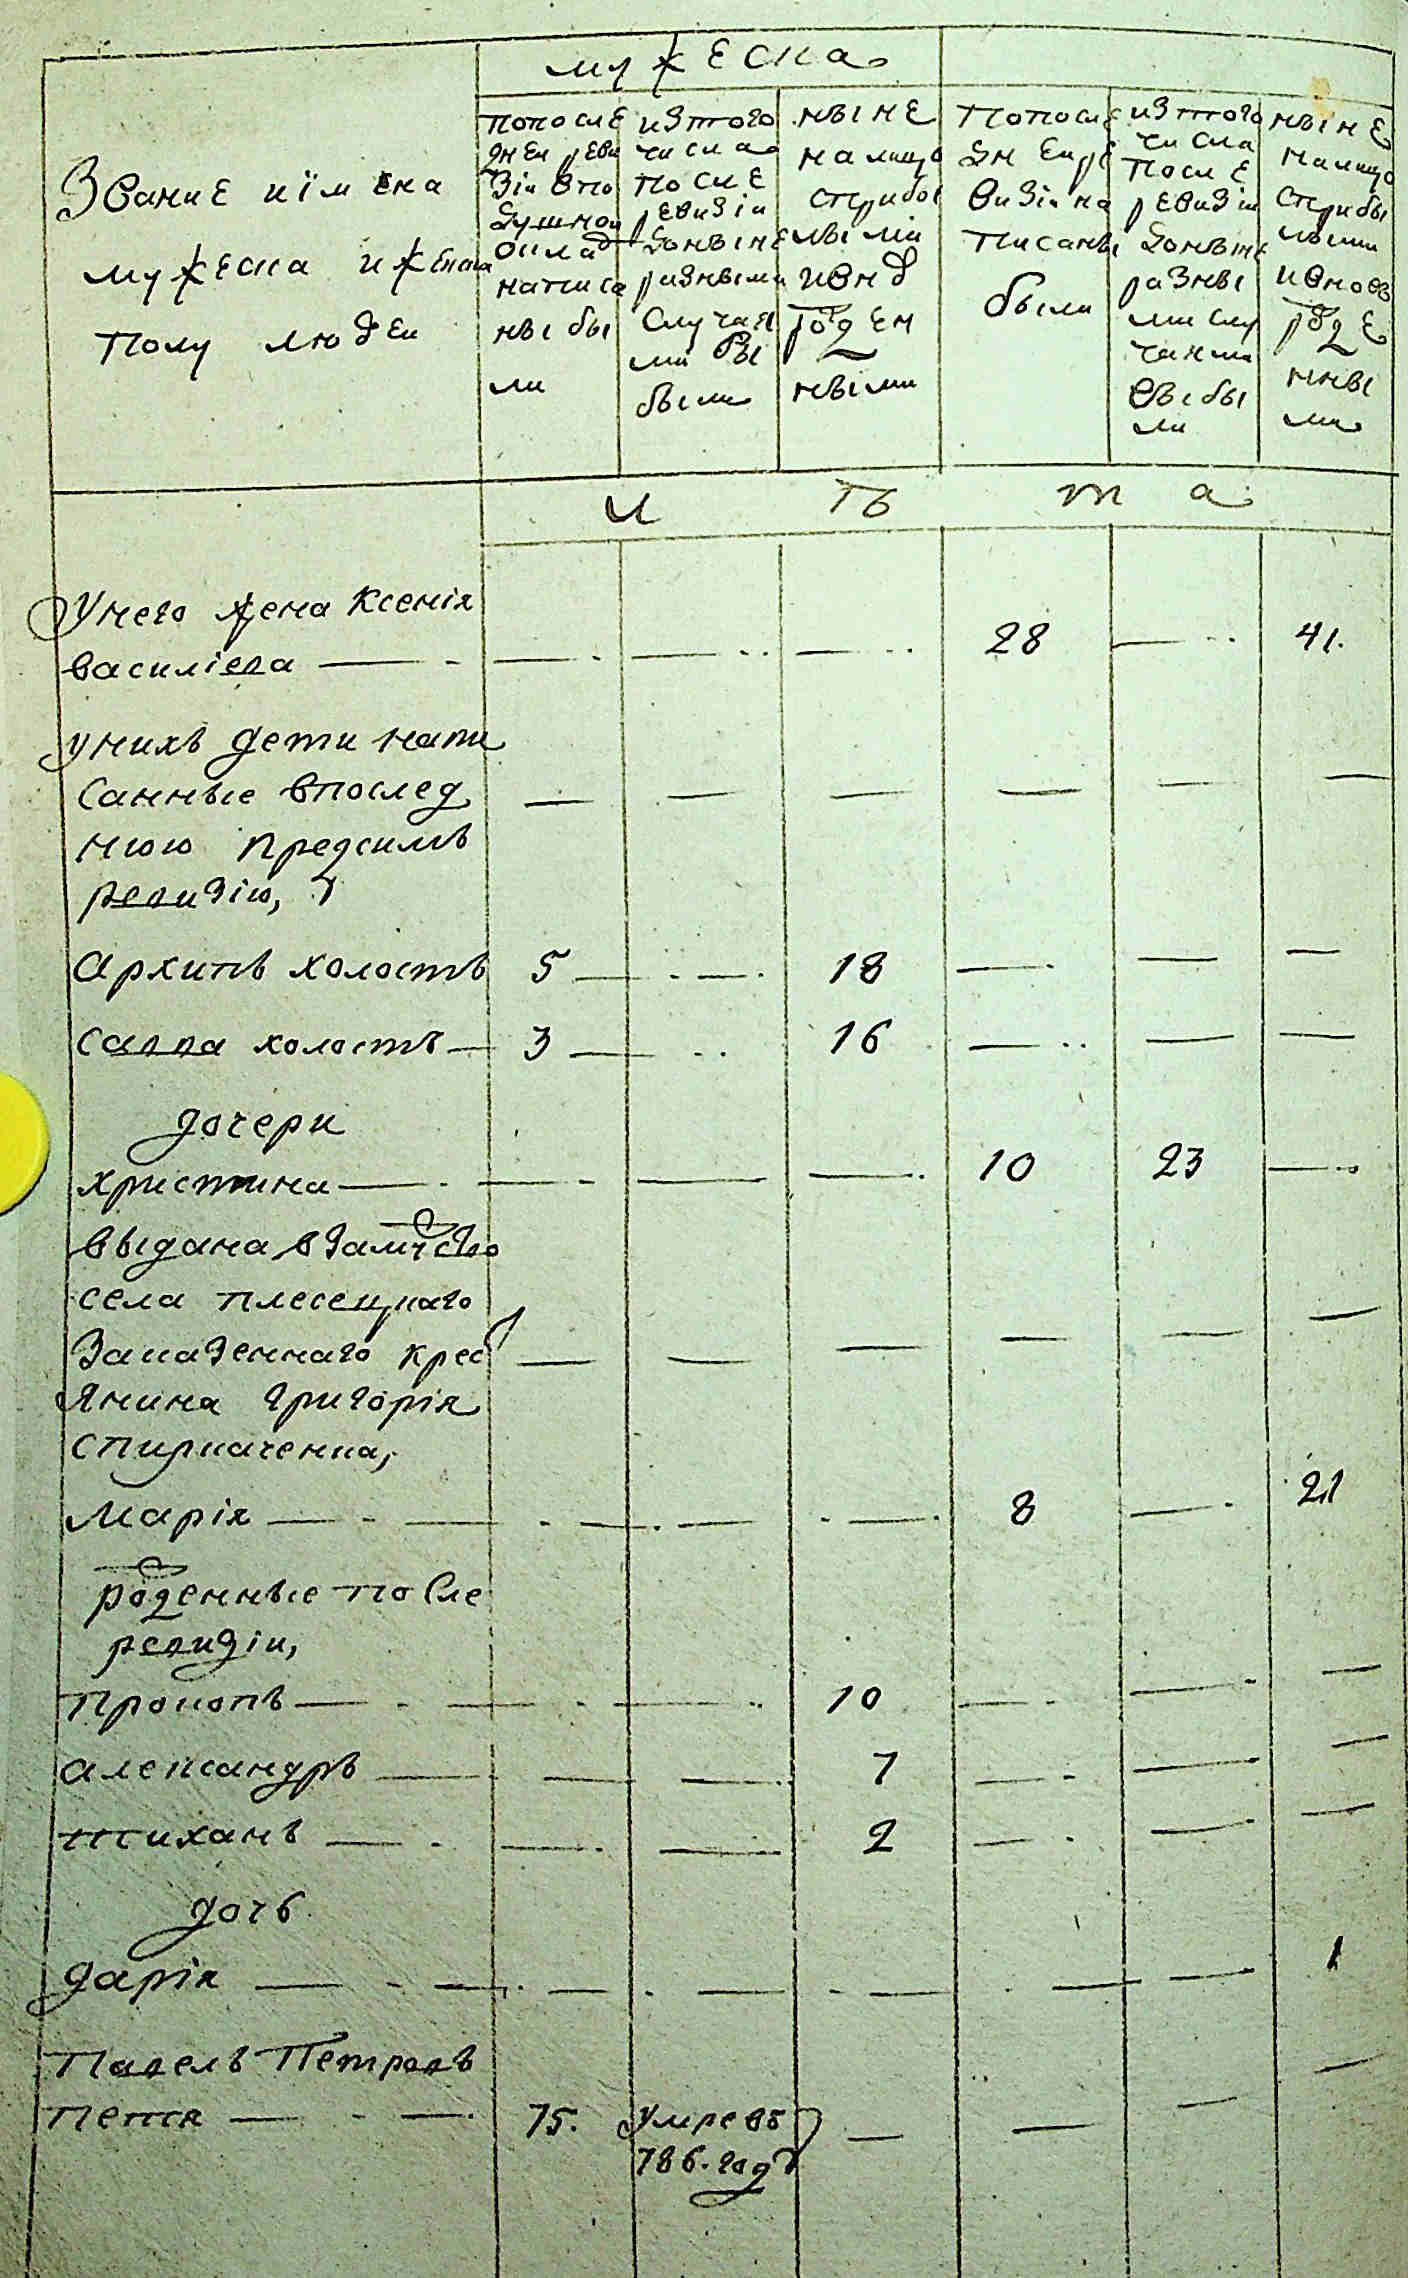 мужеска
Звание и імена
мужеска и женска
полу людеи
попосле
днеи реви
зіи впо
душнои
оклад
написа
ны бы
ли
изтого
числа
после
ревизіи
доныне
разными
случая
ми вы
были
ныне
налицо
сприбы
лыми
ивнов
рожден
ными
попосле
днеи ре
визіи на
писаны
были
изтого
числа
после
ревизіи
доныне
разны
ми слу
чаями
выбы
ли
ныне
налицо
сприбы
лыми
ивновъ
рожде
нны
ми
л ѣ т а
Унего жена Ксенія
василіева 28 41.
унихъ дети напи
санные впослед
нюю предсимъ
ревизію,
Архипъ холостъ 5 18
Савва холостъ 3 16
дочери
христина 10 23
выдана взамужство
села плесецкаго
Заказеннаго крес
янина григорія
спиркаченка,
Марія 8 21
рожденные после
ревизіи,
Прокопъ 10
александръ 7
тиханъ 2
дочь
дарія 1
Павелъ Петровъ
Пепся 75. умре въ
786. году